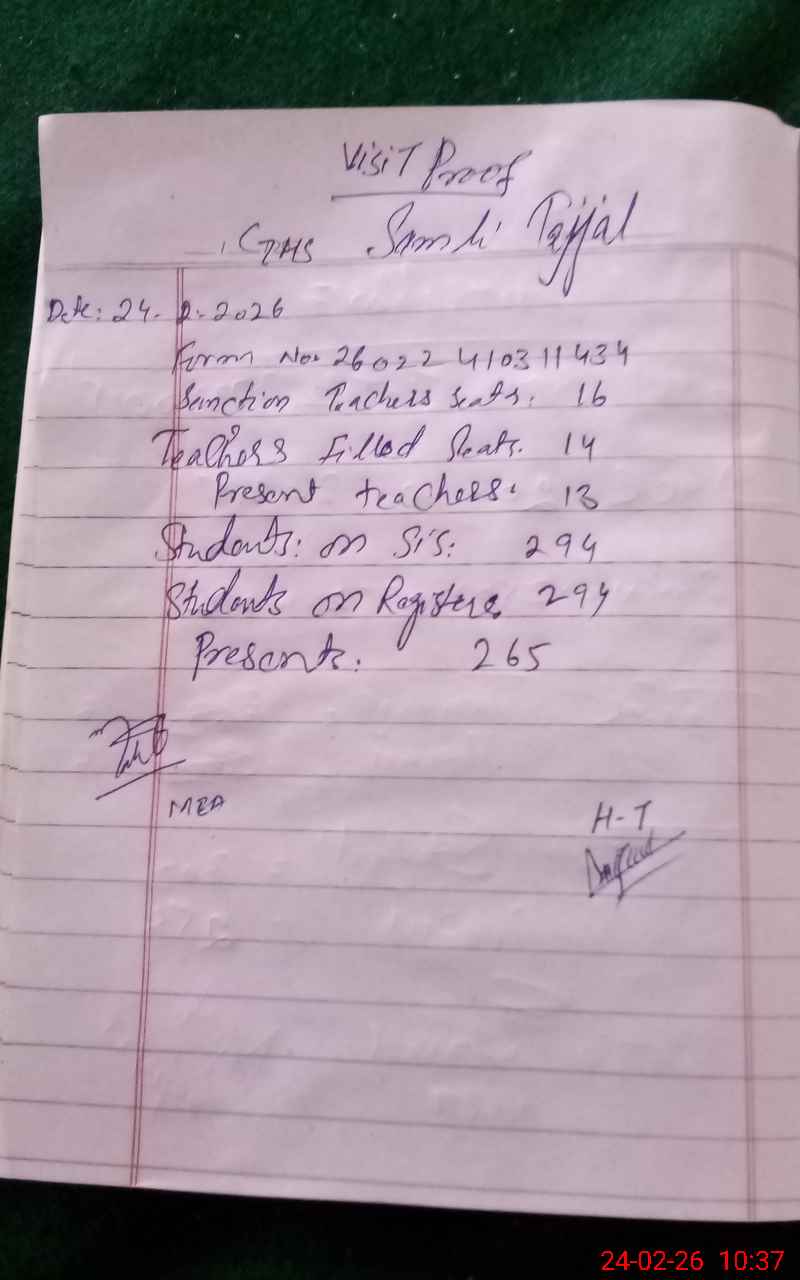 Visit Proof
GTHS Samli Tajjal
Date: 24-2-2026
Form No. 26022410311434
Sanction Teachers seats. 16
Teachers Filled Seats. 14
Present teachers. 13
Students: on Sis: 294
Students on Registers 294
Presents. 265
MEA
H-T
24-02-26 10:37